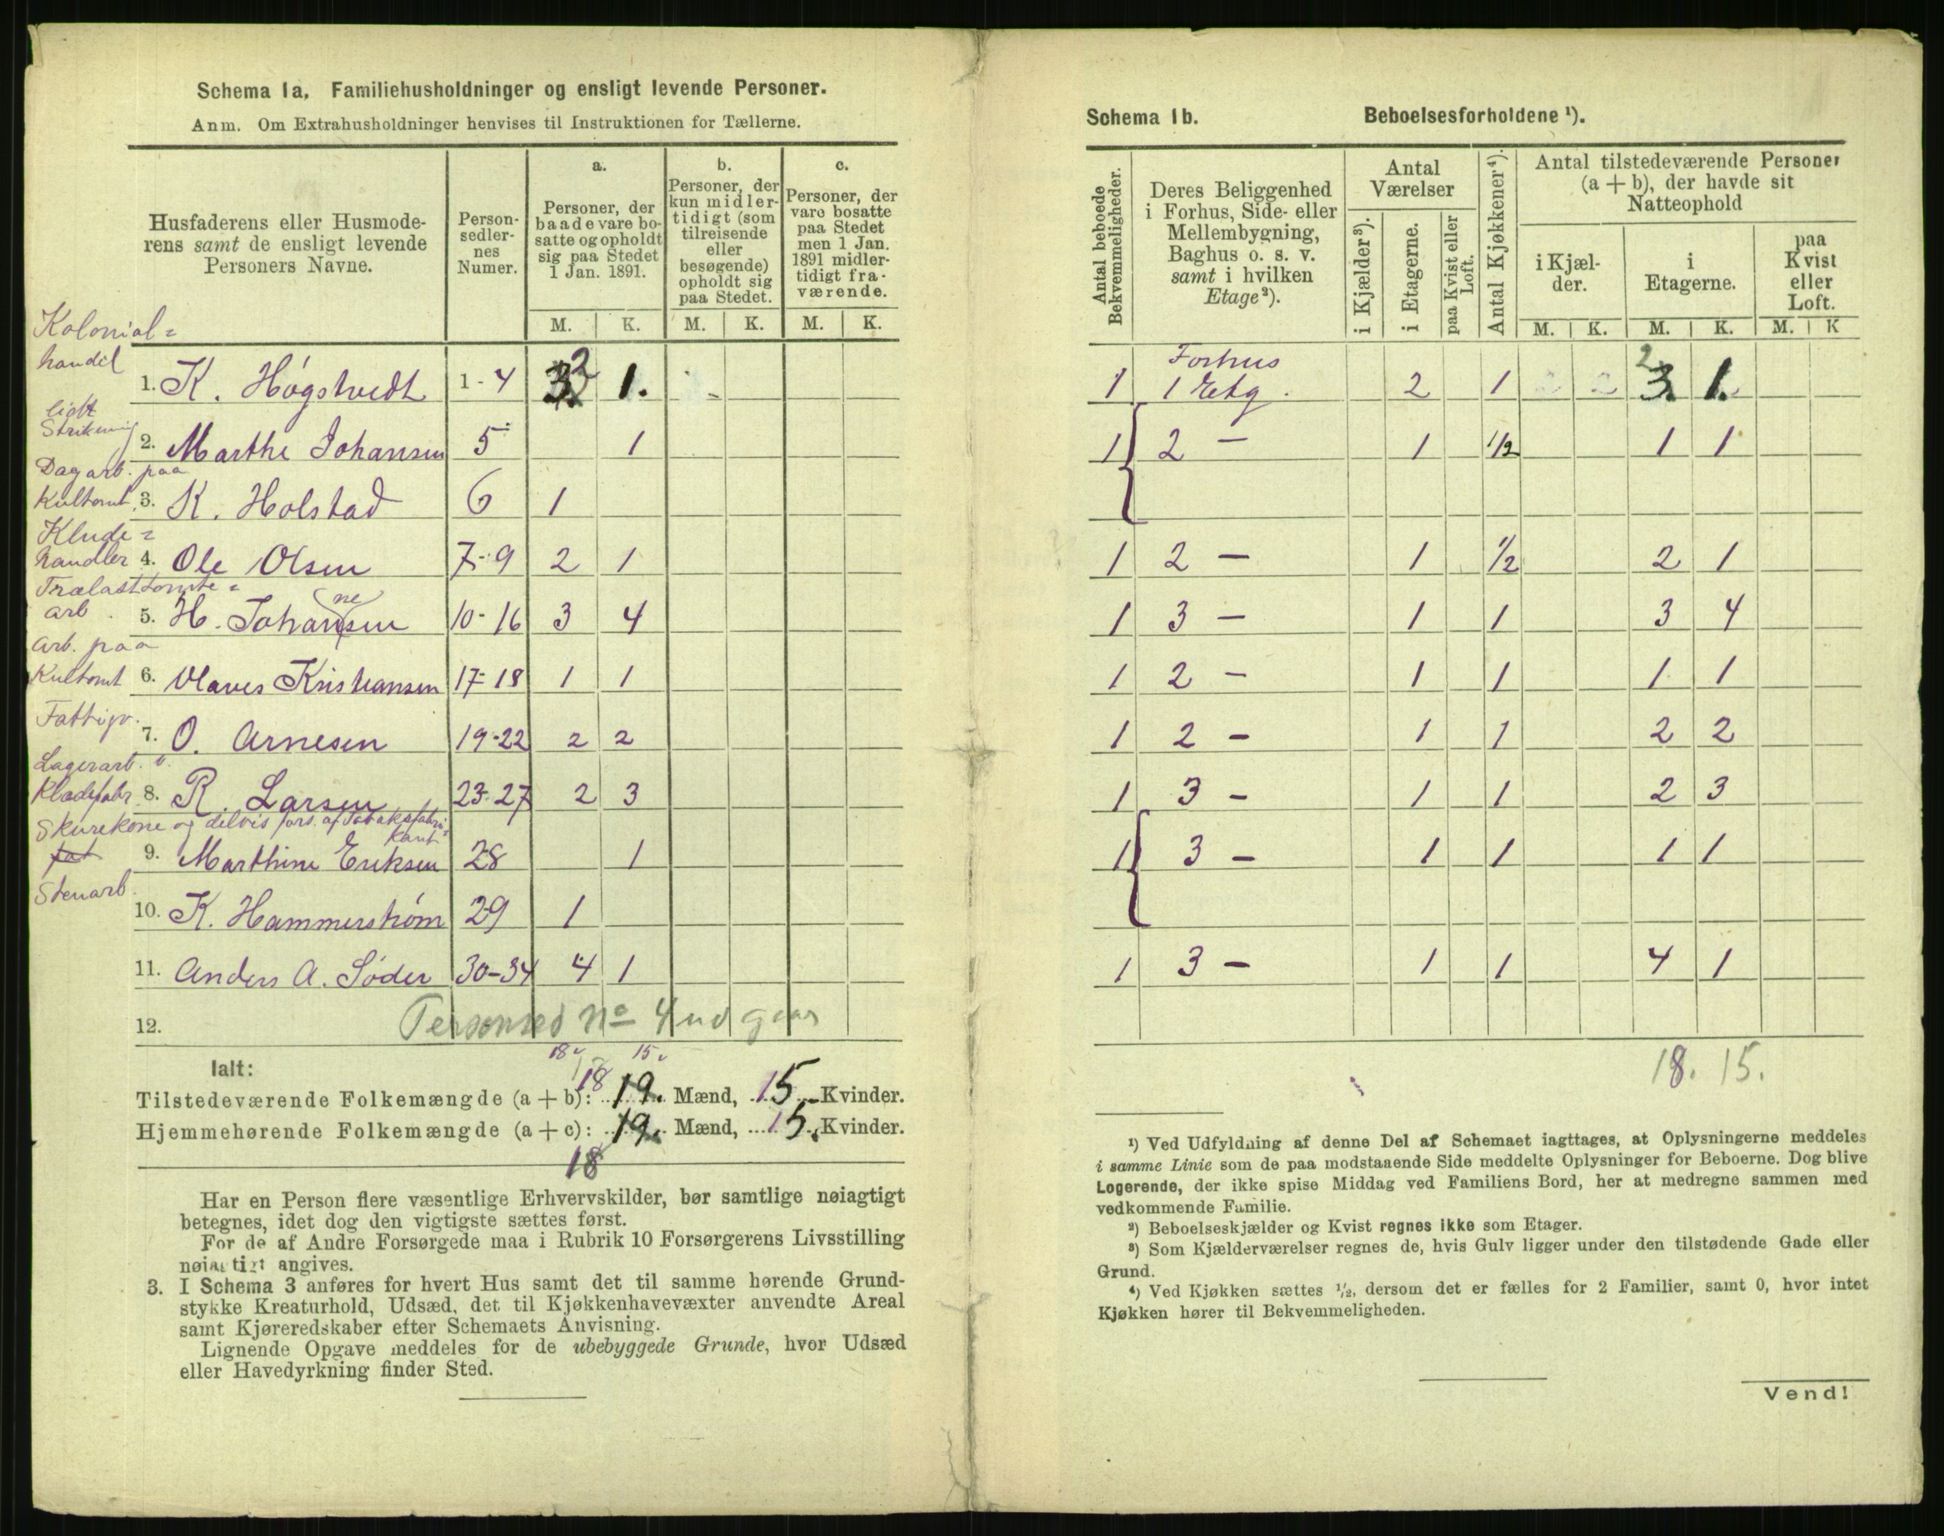 Schema 1a. Familiehusholdninger og ensligt levende Personer.
Anm. Om Extrahusholdninger henvises til Instruktionen for Tællerne.
Husfaderens eller Husmoderens samt de ensligt levende Personers Navne.
Personsedlernes Numer.
a. Personer, der baade vare bosatte og opholdt sig paa Stedet 1 Jan. 1891.
b. Personer, der kun midlertidigt (som tilreisende eller besøgende) opholdt sig paa Stedet.
c. Personer, der vare bosatte paa Stedet men 1 Jan. 1891 midlertidigt fraværende.
M. K. M. K. M. K.
Kolonial=
handel
1. K. Høgstvedt 1-4 3. 2 1.
2. Marthe Johansen 5 1
Dagarb. paa
Kultomt.
3. K. Holstad 6 1
Klude=
handler
4. Ole Olsen 7-9 2 1
Trælasttomte=
arb.
5. H. Johansen (ne) 10-16 3 4
Arb. paa
Kultomt
6. Olaves Kristiansen 17-18 1 1
Fattigv.
7. O. Arnesen 19-22 2 2
Lagerarb. v.
Klædefabr
8. R. Larsen 23-27 2 3
Skurekone og delvis fors. af Tobaksfabri=
kant
9. Marthine Eriksen 28 1
Stenarb.
10. K. Hammerstrøm 29 1
11. Anders A. Söder 30-34 4 1
12. Personsed No 4 udgaar
18 v 15 v
Ialt:
Tilstedeværende Folkemængde (a + b): 18 19. Mænd, 15 Kvinder.
Hjemmehørende Folkemængde (a + c): 19. Mænd, 15. Kvinder.
18
Har en Person flere væsentlige Erhvervskilder, bør samtlige nøiagtigt
betegnes, idet dog den vigtigste sættes først.
For de af Andre Forsørgede maa i Rubrik 10 Forsørgerens Livsstilling
nøiagtigt angives.
3. I Schema 3 anføres for hvert Hus samt det til samme hørende Grund-
stykke Kreaturhold, Udsæd, det til Kjøkkenhavevæxter anvendte Areal
samt Kjøreredskaber efter Schemaets Anvisning.
Lignende Opgave meddeles for de ubebyggede Grunde, hvor Udsæd
eller Havedyrkning finder Sted.
Schema 1b. Beboelsesforholdene ¹).
Antal beboede Bekvemmeligheder.
Deres Beliggenhed i Forhus, Side- eller Mellembygning, Baghus o. s. v. samt i hvilken Etage ²).
Antal Værelser
i Kjælder ³).
i Etagerne.
paa Kvist eller Loft.
Antal Kjøkkener ⁴).
Antal tilstedeværende Personer (a + b), der havde sit Natteophold
i Kjælder.
i Etagerne.
paa Kvist eller Loft.
M. K. M. K. M. K
1 Forhus 1 Etg. 2 1 2 3. 1.
1 2 — 1 1/2 1 1
1 2 — 1 1/2 2 1
1 3 — 1 1 3 4
1 2 — 1 1 1 1
1 2 — 1 1 2 2
1 3 — 1 1 2 3
1 3 — 1 1 1 1
1 3 — 1 1 4 1
18. 15.
¹) Ved Udfyldning af denne Del af Schemaet iagttages, at Oplysningerne meddeles
i samme Linie som de paa modstaaende Side meddelte Oplysninger for Beboerne. Dog blive
Logerende, der ikke spise Middag ved Familiens Bord, her at medregne sammen med
vedkommende Familie.
²) Beboelseskjælder og Kvist regnes ikke som Etager.
³) Som Kjælderværelser regnes de, hvis Gulv ligger under den tilstødende Gade eller
Grund.
⁴) Ved Kjøkken sættes 1/2, dersom det er fælles for 2 Familier, samt 0, hvor intet
Kjøkken hører til Bekvemmeligheden.
Vend!